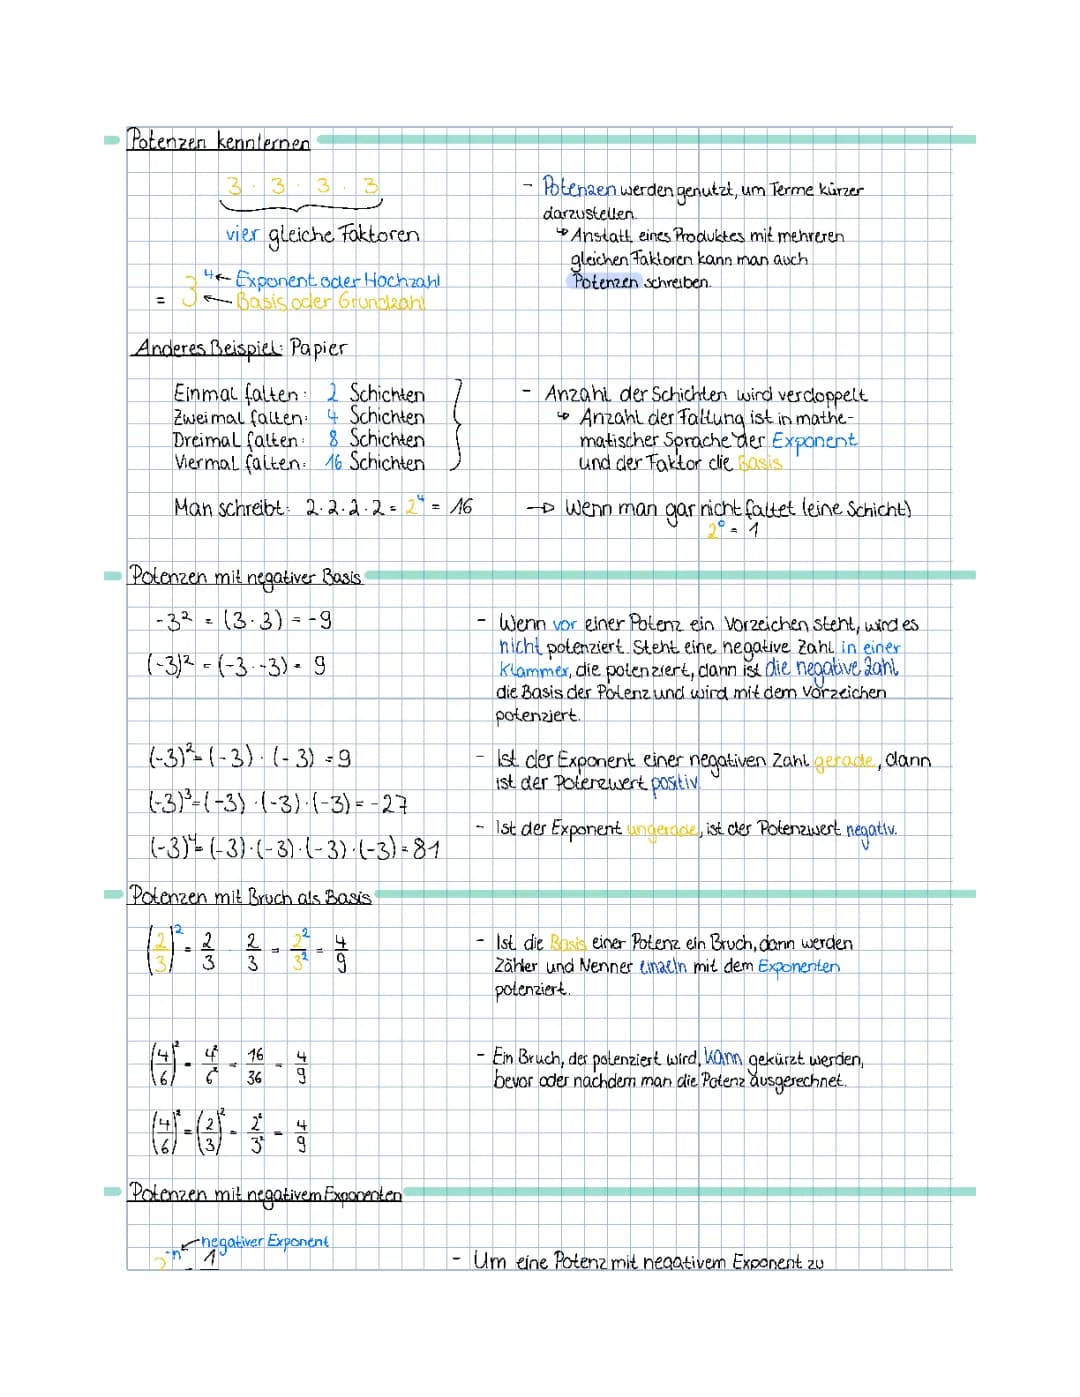 Potenzen kennlernen
3 · 3 · 3 · 3
vier gleiche Faktoren
= 3⁴ ← Exponent oder Hochzahl
← Basis oder Grundzahl
- Potenzen werden genutzt, um Terme kürzer
darzustellen.
↳ Anstatt eines Produktes mit mehreren
gleichen Faktoren kann man auch
Potenzen schreiben.
Anderes Beispiel: Papier
Einmal falten: 2 Schichten
Zweimal falten: 4 Schichten
Dreimal falten: 8 Schichten
Viermal falten: 16 Schichten
- Anzahl der Schichten wird verdoppelt
↳ Anzahl der Faltung ist in mathe-
matischer Sprache der Exponent
und der Faktor die Basis
Man schreibt: 2·2·2·2 = 2⁴ = 16
→ Wenn man gar nicht faltet (eine Schicht)
2⁰ = 1
Potenzen mit negativer Basis
-3² = (3·3) = -9
(-3)² = (-3·-3) = 9
- Wenn vor einer Potenz ein Vorzeichen steht, wird es
nicht potenziert. Steht eine negative Zahl in einer
Klammer, die potenziert, dann ist die negative Zahl
die Basis der Potenz und wird mit dem Vorzeichen
potenziert.
(-3)² = (-3) · (-3) = 9
(-3)³ = (-3) · (-3) · (-3) = -27
(-3)⁴ = (-3) · (-3) · (-3) · (-3) = 81
- Ist der Exponent einer negativen Zahl gerade, dann
ist der Potenzwert positiv.
- Ist der Exponent ungerade, ist der Potenzwert negativ.
Potenzen mit Bruch als Basis
(2/3)² = 2/3 · 2/3 = 2²/3² = 4/9
- Ist die Basis einer Potenz ein Bruch, dann werden
Zähler und Nenner einzeln mit dem Exponenten
potenziert.
(4/6)² = 4²/6² = 16/36 = 4/9
(4/6)² = (2/3)² = 2²/3² = 4/9
- Ein Bruch, der potenziert wird, kann gekürzt werden,
bevor oder nachdem man die Potenz ausgerechnet.
Potenzen mit negativem Exponenten
negativer Exponent
2⁻ⁿ 1
- Um eine Potenz mit negativem Exponent zu